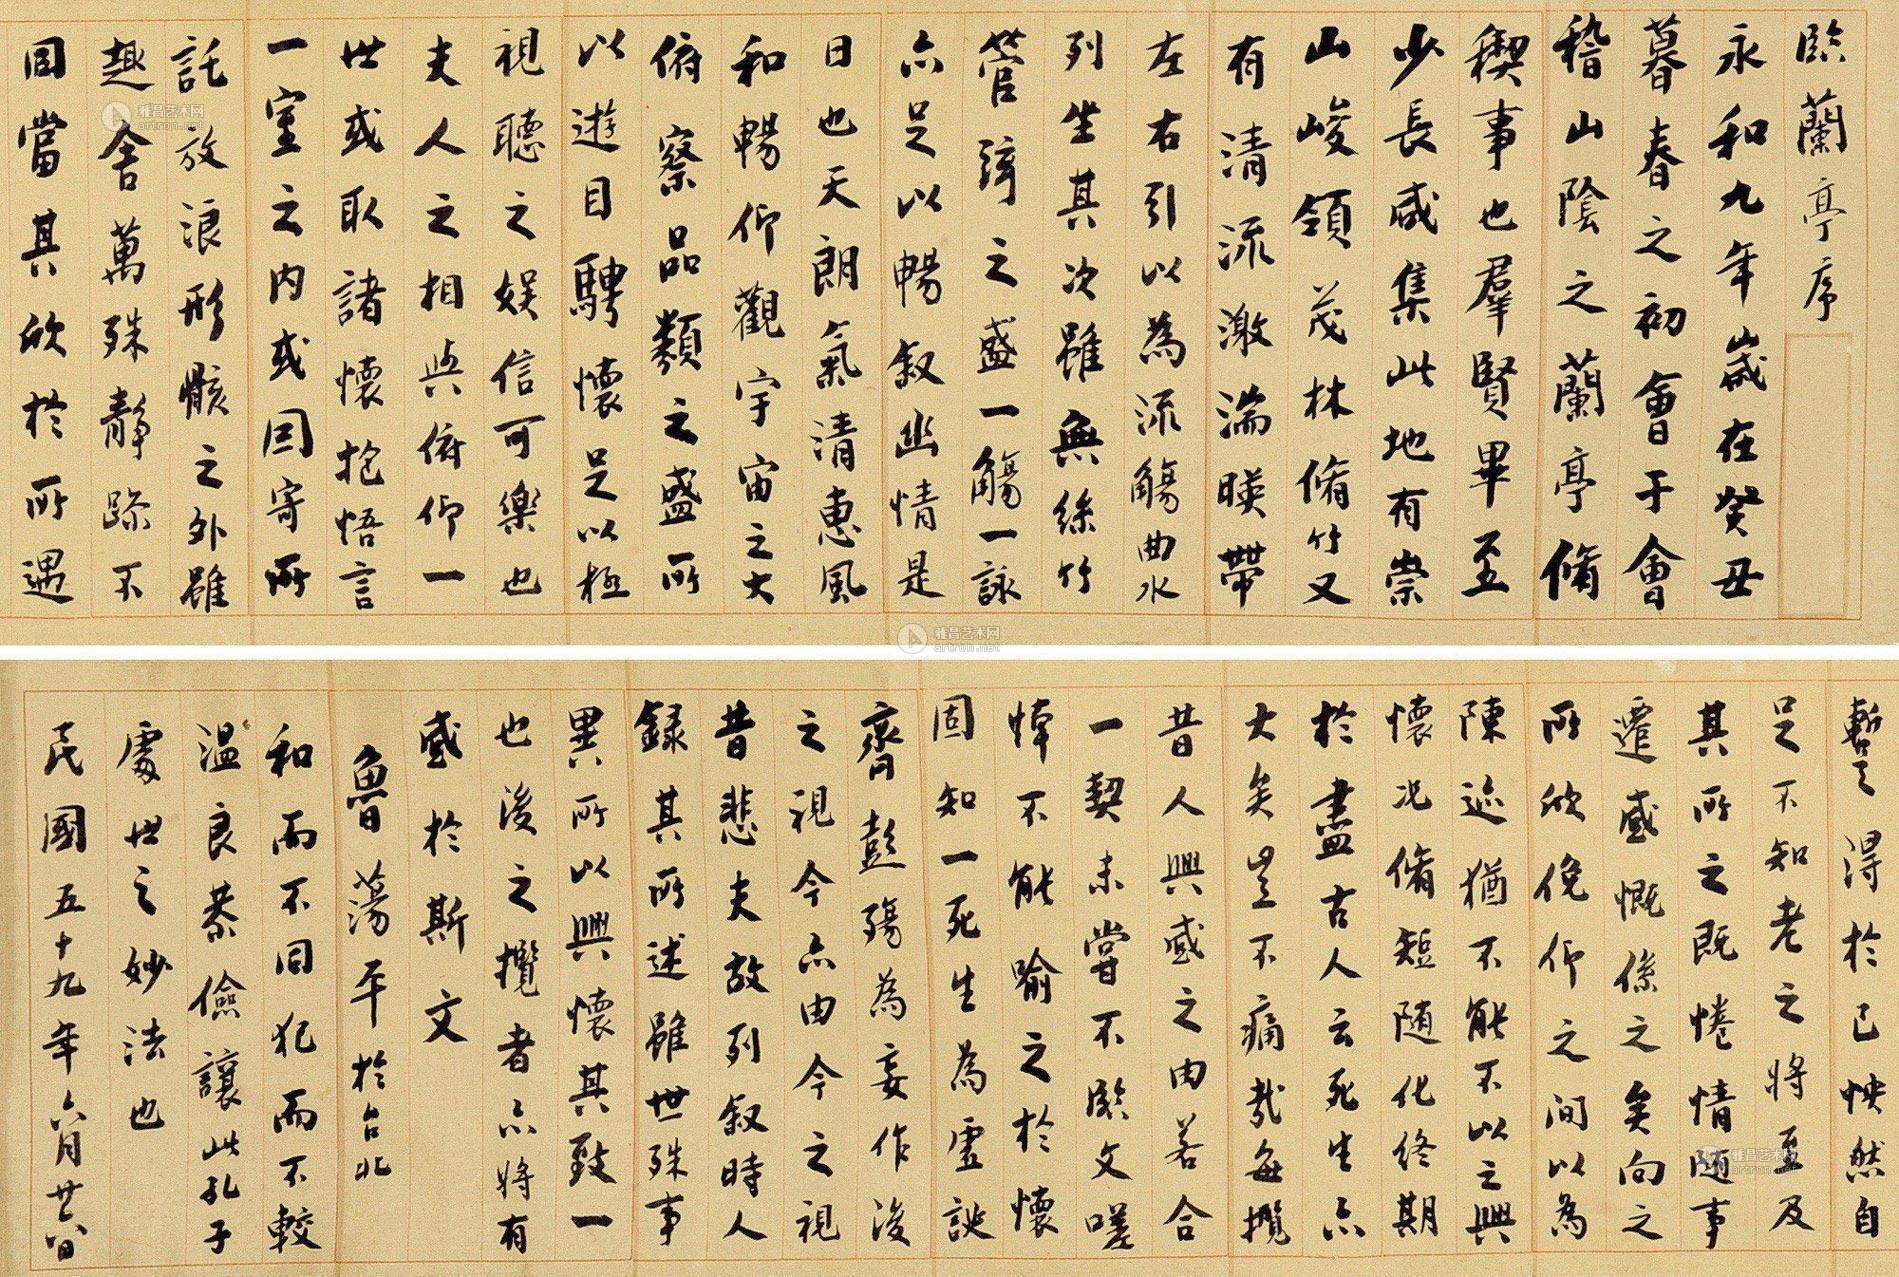 臨蘭亭序
永和九年歲在癸丑
暮春之初會于會
稽山陰之蘭亭脩
稧事也羣賢畢至
少長咸集此地有崇
山峻領茂林脩竹又
有清流激湍暎帶
左右引以為流觴曲水
列坐其次雖無絲竹
管弦之盛一觴一詠
亦足以暢叙幽情是
日也天朗氣清惠風
和暢仰觀宇宙之大
俯察品類之盛所
以遊目騁懷足以極
視聽之娛信可樂也
夫人之相與俯仰一
世或取諸懷抱悟言
一室之內或因寄所
託放浪形骸之外雖
趣舍萬殊靜躁不
同當其欣於所遇
暫得於己怏然自
足不知老之將至及
其所之既惓情随事
遷感慨係之矣向之
所欣俛仰之間以為
陳迹猶不能不以之興
懷况脩短随化終期
於盡古人云死生亦
大矣豈不痛哉每攬
昔人興感之由若合
一契未嘗不臨文嗟
悼不能喻之於懷
固知一死生為虛誕
齊彭殤為妄作後
之視今亦由今之視
昔悲夫故列叙時人
録其所述雖世殊事
異所以興懷其致一
也後之攬者亦將有
感於斯文
魯蕩平於台北
和而不同犯而不較
温良恭儉讓此孔子
處世之妙法也
民國五十九年六月廿八日
雅昌艺术网
artron.net
雅昌艺术网
artron.net
雅昌艺术网
artron.net